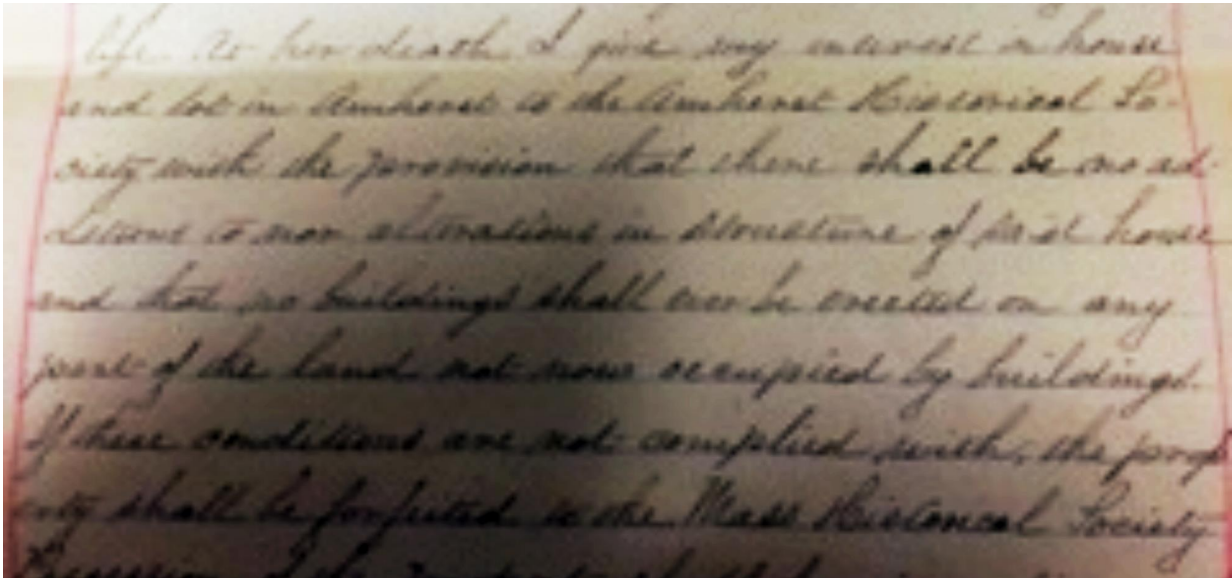 life. At her death I give my interest in house
and lot in Amherst to the Amherst Historical So-
ciety with the provision that there shall be no ad-
ditions to nor alterations in structure of said house
and that no buildings shall ever be erected on any
part of the land not now occupied by buildings.
If these conditions are not complied with, the prop
erty shall be forfeited to the Mass Historical Society